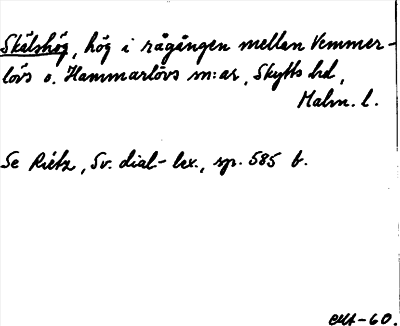 Skälshög, hög i rågången mellan Vemmer-
lövs o. Hammarlövs m:ar, Skytts hd,
Malm. l.
Se Rietz, Sv. dial-lex., sp. 585 b.
-60.